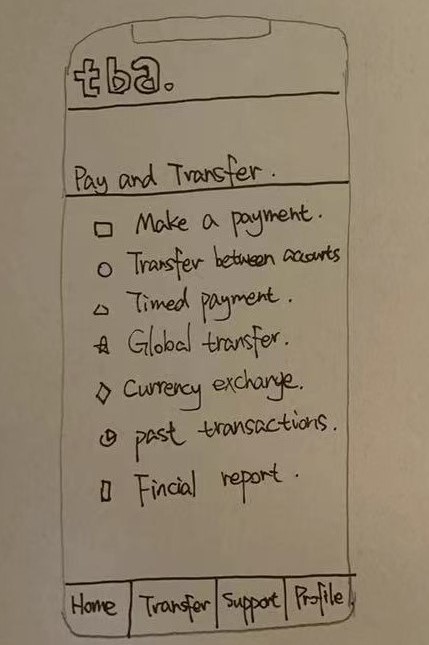 tba.
Pay and Transfer.
Make a payment.
Transfer between accounts
Timed payment.
Global transfer.
Currency exchange.
past transactions.
Fincial report.
Home Transfer Support Profile